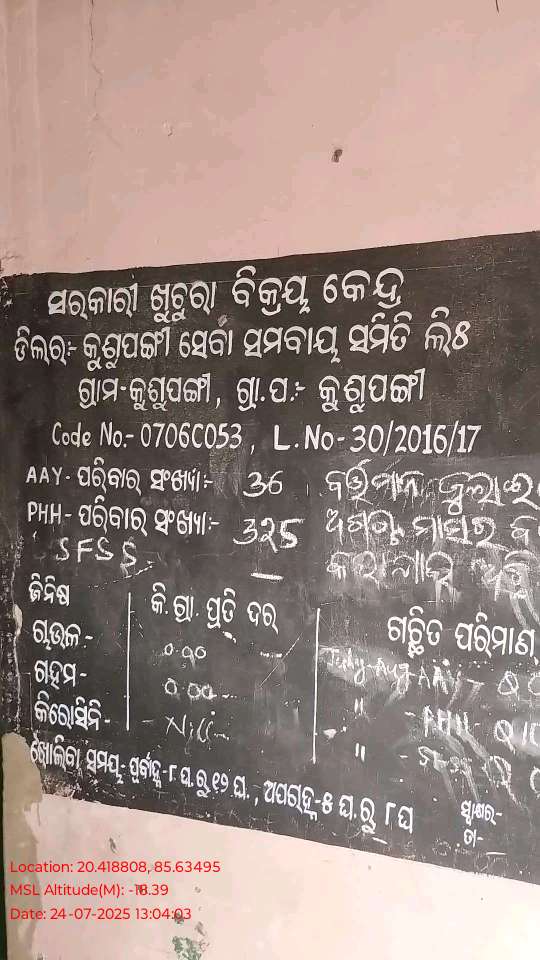 ସରକାରୀ ଖୁଚୁରା ବିକ୍ରୟ କେନ୍ଦ୍ର
ଡିଲର୍:- କୁଶୁପଙ୍ଗୀ ସେବା ସମବାୟ ସମିତି ଲିଃ
ଗ୍ରାମ-କୁଶୁପଙ୍ଗୀ, ଗ୍ରା.ପ.:- କୁଶୁପଙ୍ଗୀ
Code No.- 0706C053, L.No-30/2016/17
AAY- ପରିବାର ସଂଖ୍ୟା:- 36
PHH- ପରିବାର୍ ସଂଖ୍ୟା:- 325
SFSS
ବର୍ତ୍ତମାନ ଜୁଲାଇ
ମାସର
ଜିନିଷ କି.ଗ୍ରା. ପ୍ରତି ଦର୍ ଗଚ୍ଛିତ ପରିମାଣ
ଚାଉଳ- 0.00
ଗହମ- 0.00
କିରୋସିନି- Nill
AAY-
" - PHH-
"
ଖୋଲିବା ସମୟ- ପୂର୍ବାହ୍ନ-୮ ଘ.ରୁ ୧୨ ଘ., ଅପରାହ୍ନ-୫ ଘ.ରୁ ୮ ଘ
ସ୍ୱାକ୍ଷର-
ତା-
Location: 20.418808, 85.63495
MSL Altitude(M): -18.39
Date: 24-07-2025 13:04:03